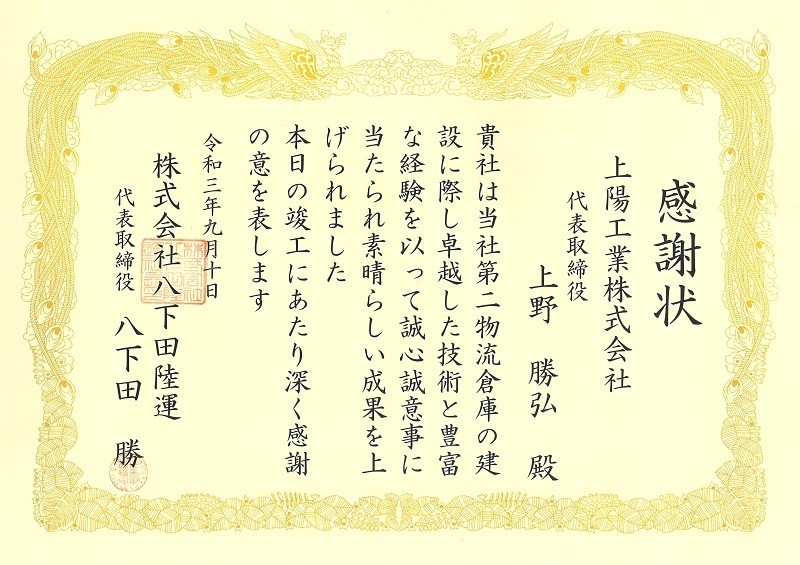 感謝状
上陽工業株式会社
代表取締役
上野 勝弘 殿
貴社は当社第二物流倉庫の建
設に際し卓越した技術と豊富
な経験を以って誠心誠意事に
当たられ素晴らしい成果を上
げられました
本日の竣工にあたり深く感謝
の意を表します
令和三年九月十日
株式会社八下田陸運
代表取締役 八下田 勝